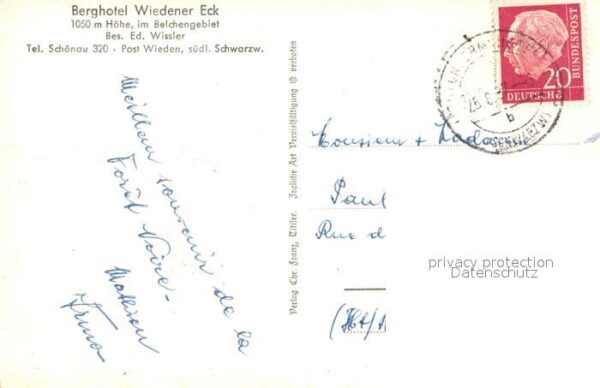 Berghotel Wiedener Eck
1050 m Höhe, im Belchengebiet
Bes. Ed. Wissler
Tel. Schönau 320 · Post Wieden, südl. Schwarzw.
Meilleur souvenir de la
Forêt Noire -
Mathieu
Irma
Verlag Chr. Franz, Titisee. Jegliche Art Vervielfältigung ist verboten
20
DEUTSCHE
BUNDESPOST
b
(SCHWARZW)
Monsieur + Madame
Paul
Rue d
(Ht/
privacy protection
Datenschutz